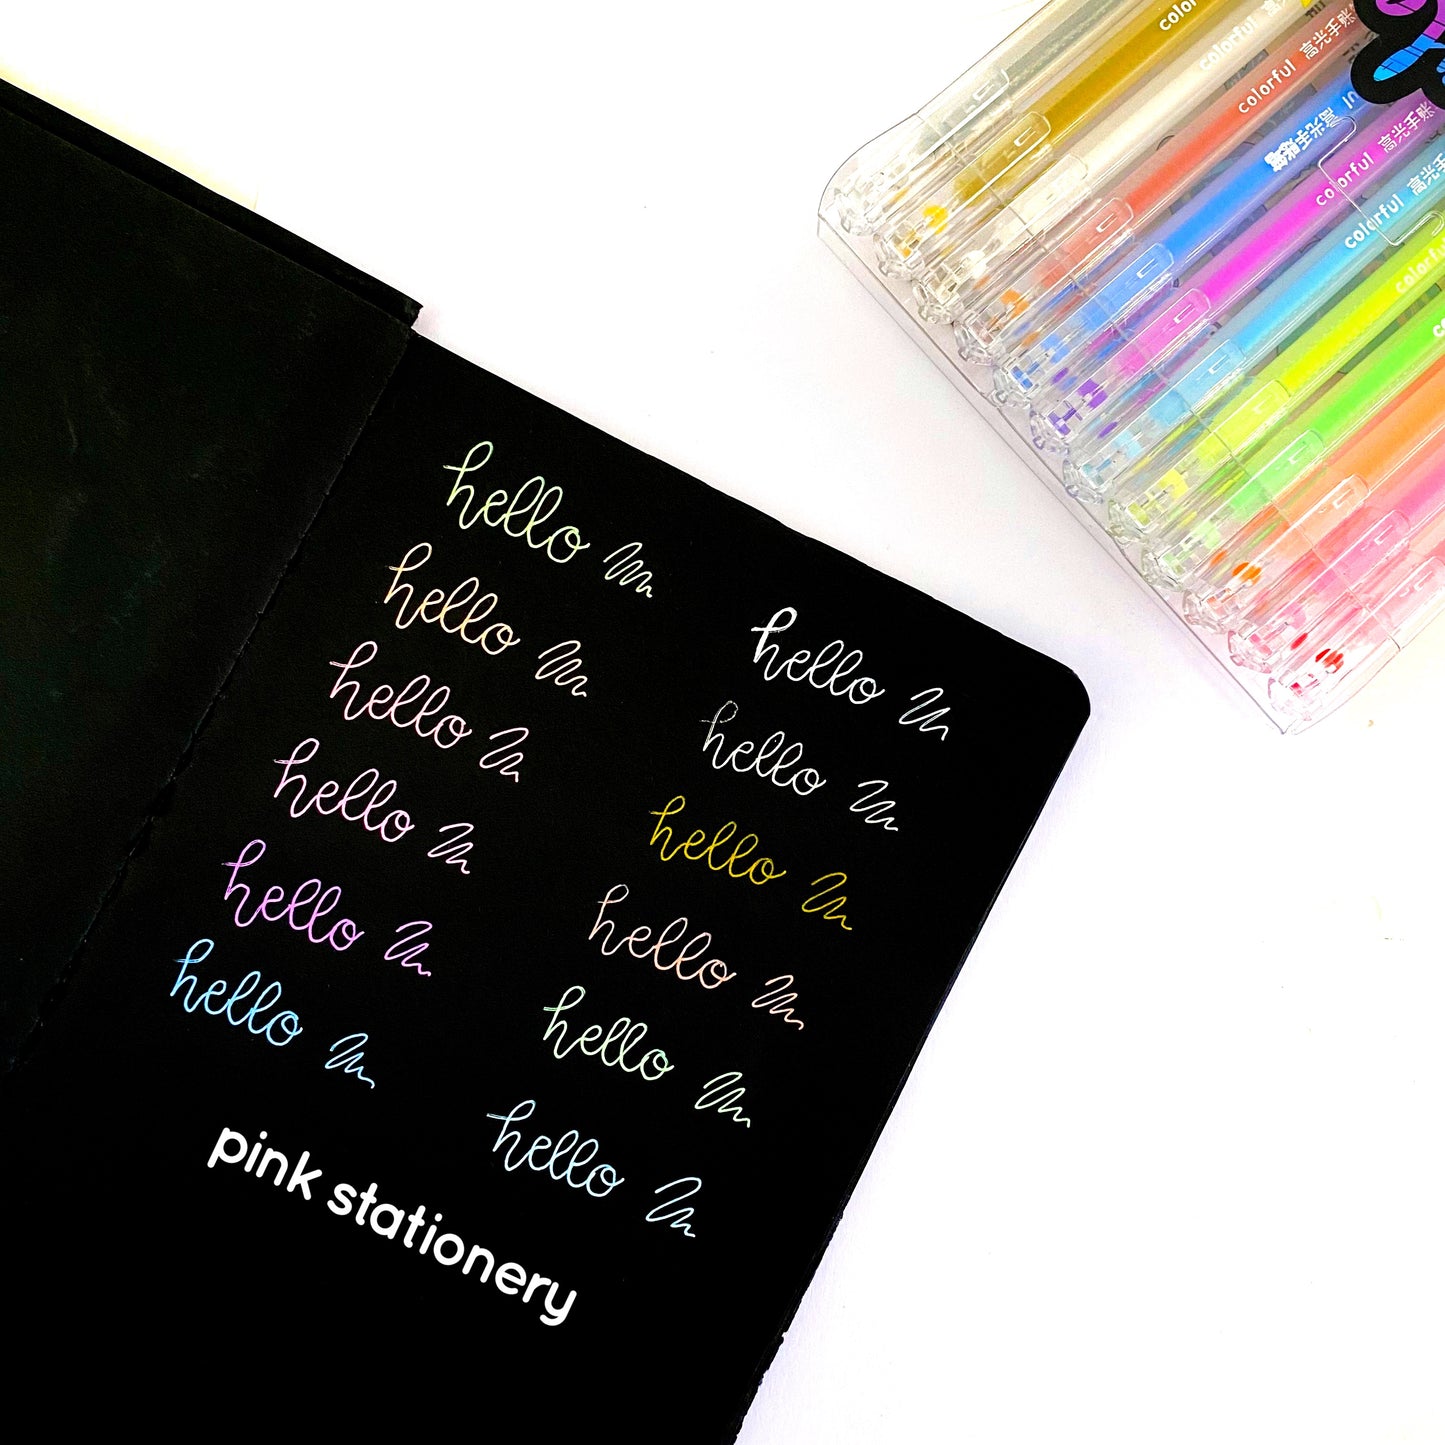 hello
hello
hello
hello
hello
hello
hello
hello
hello
hello
hello
hello
pink stationery
color
colorful
colorful 高光手账
高光手账
colorful 高光手账
colorful 高光手
colorful